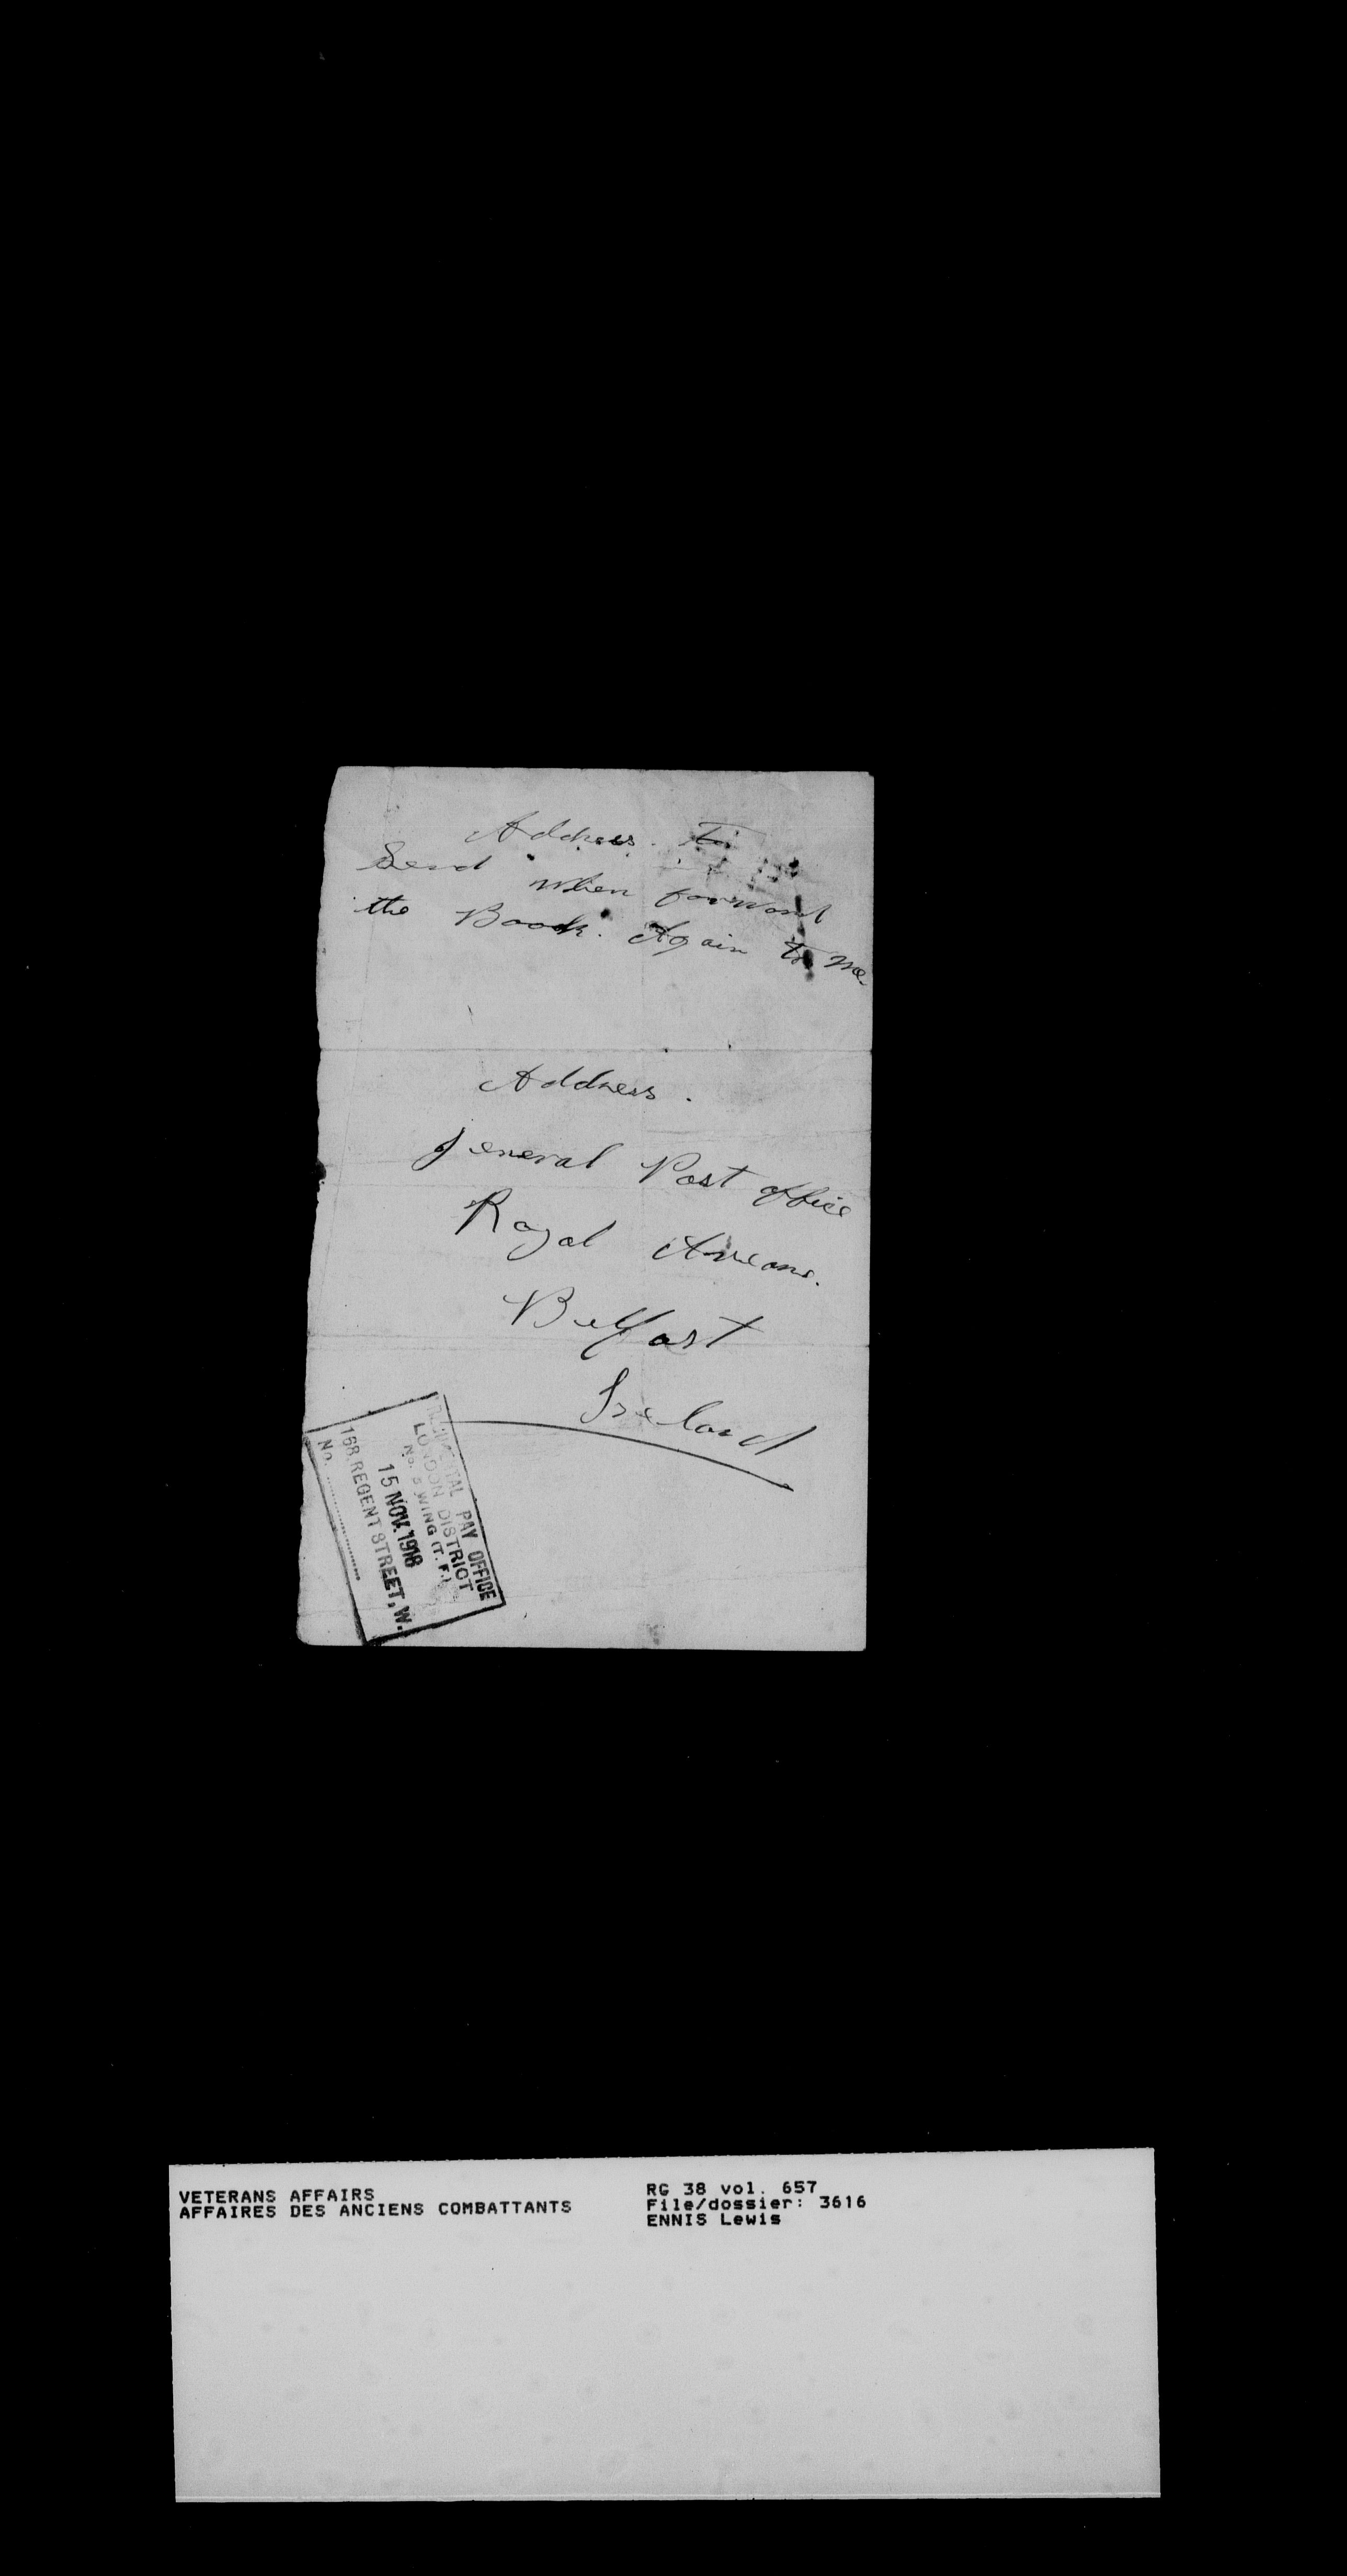 Address. To
Send when forward
the Boock. Again to me
Address.
General Post office
Royal
Belfast
Ireland
REGIMENTAL PAY OFFICE
LONDON DISTRICT
No. 5 WING (T.F.)
15 NOV. 1918
168, REGENT STREET, W.
No.
VETERANS AFFAIRS
AFFAIRES DES ANCIENS COMBATTANTS
RG 38 vol. 657
File/dossier: 3616
ENNIS Lewis